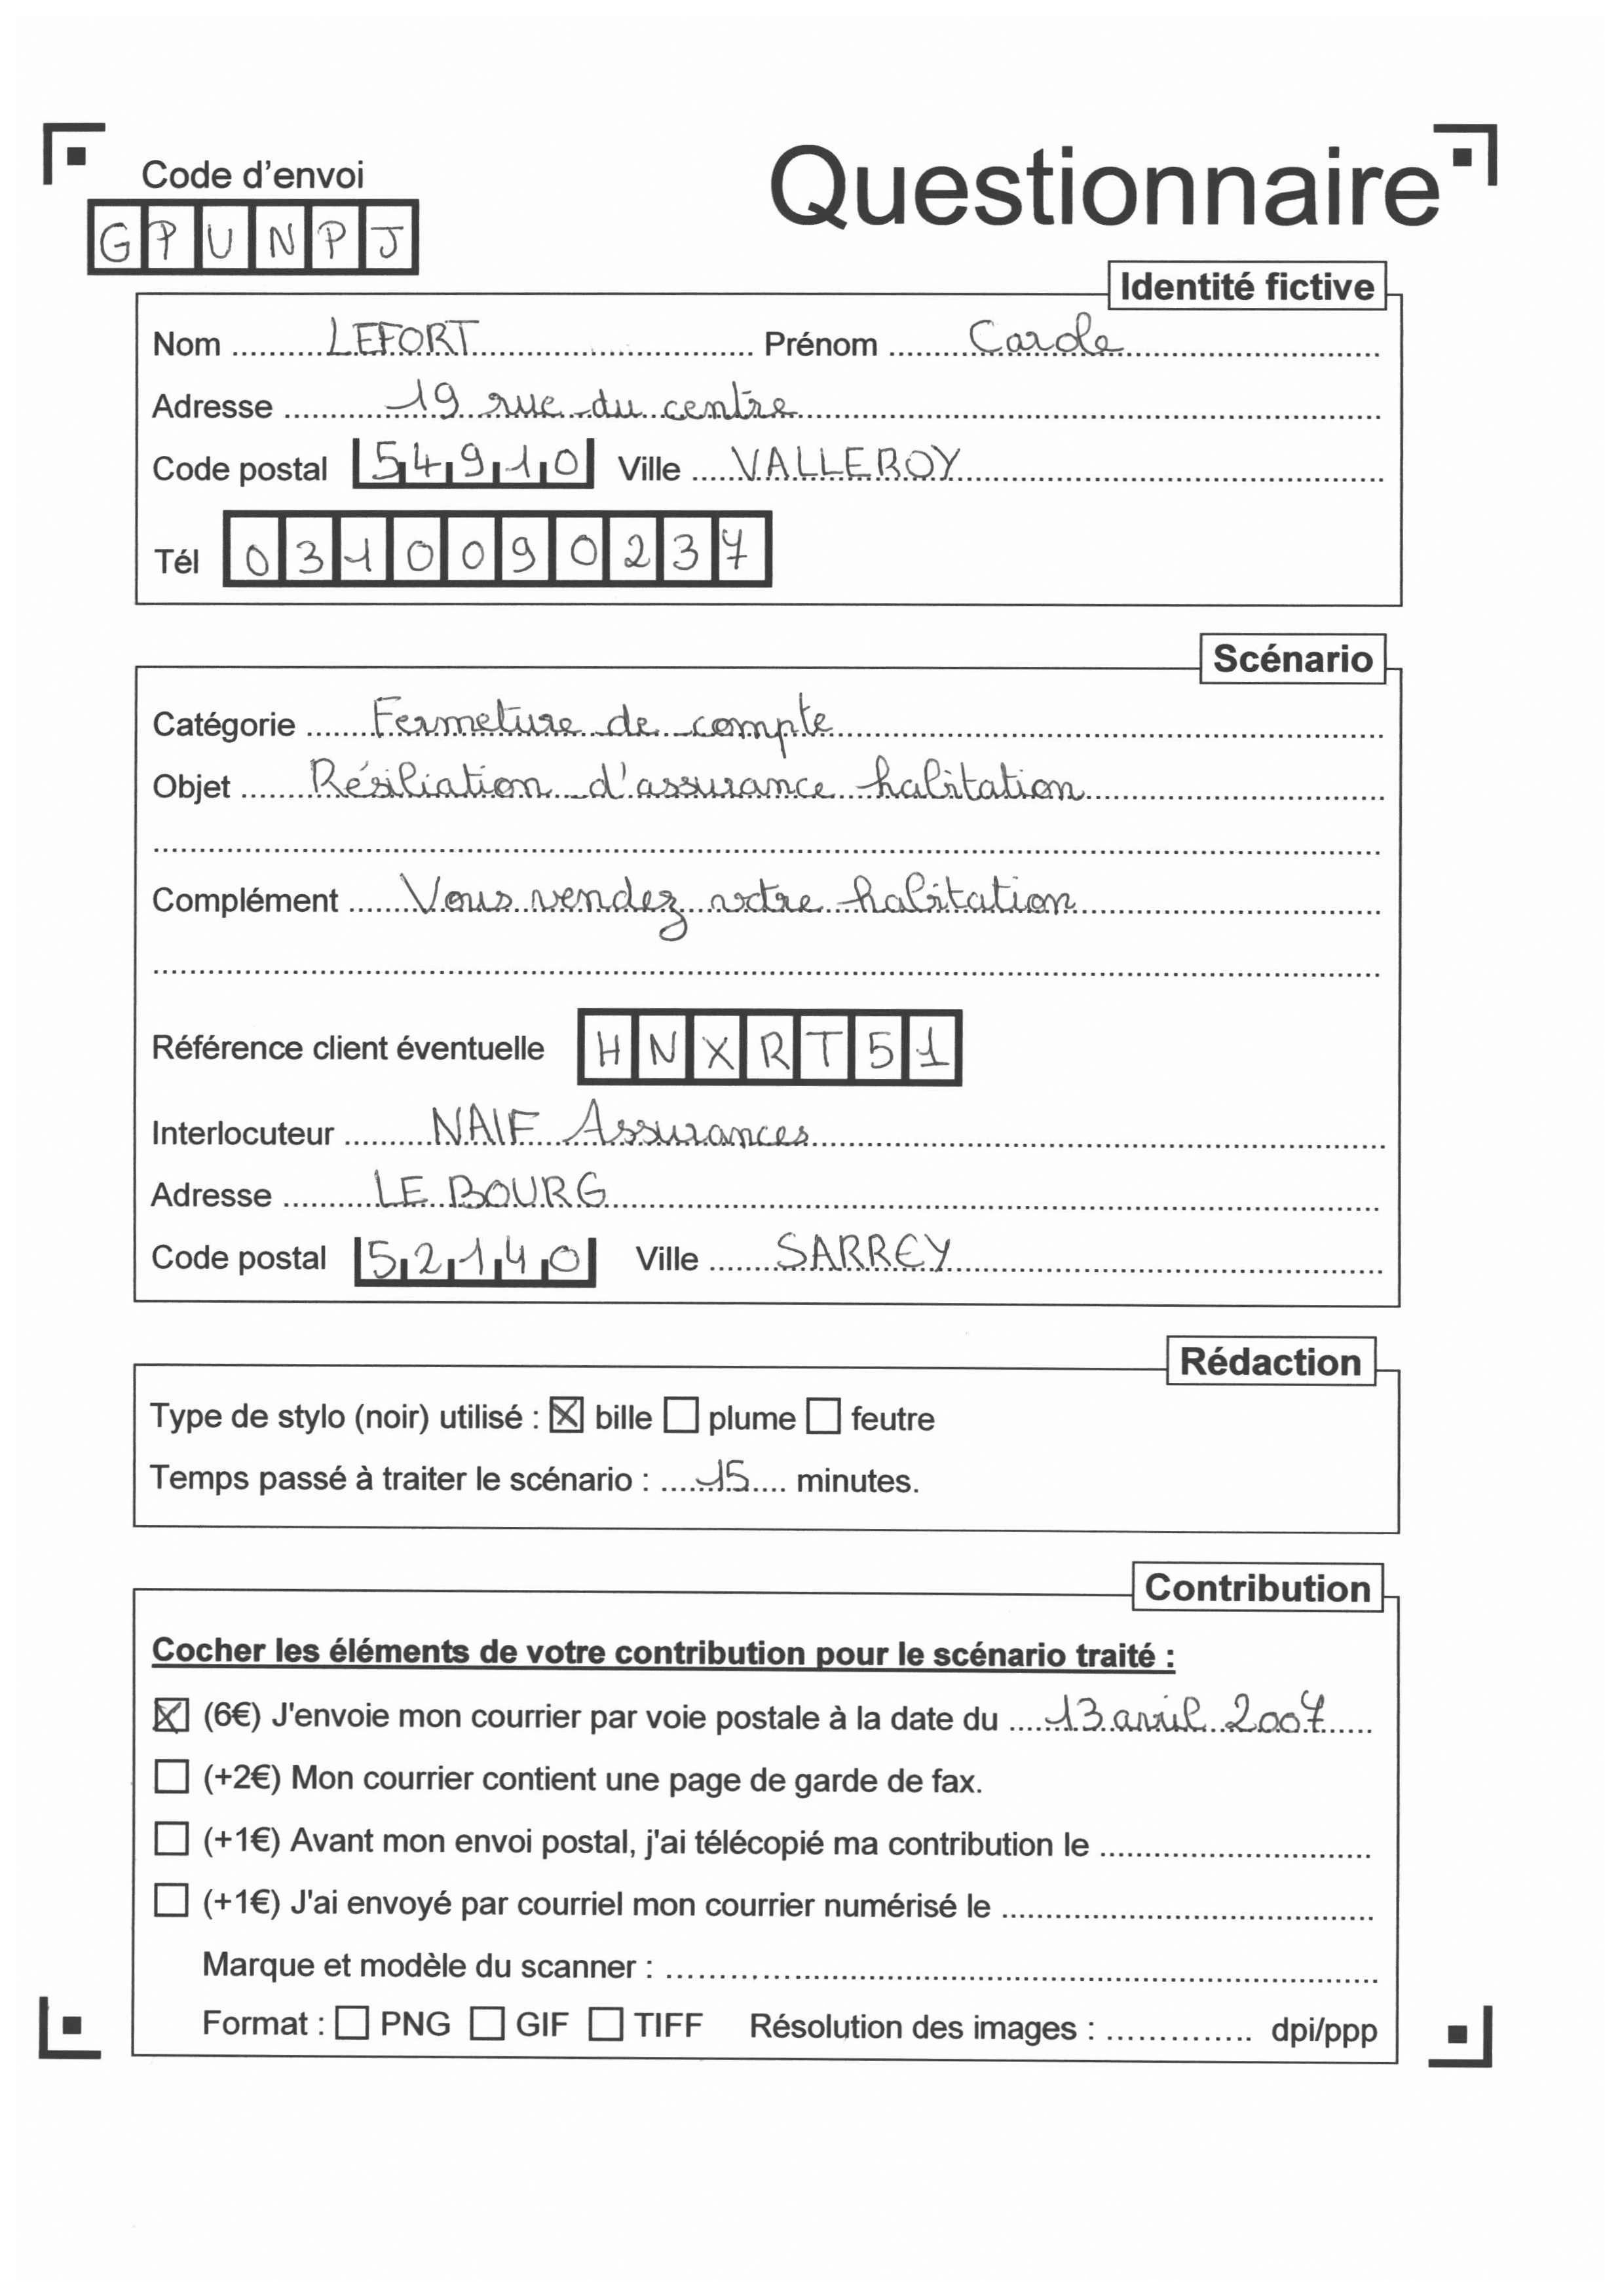 Code d'envoi
Questionnaire
GPUNPJ
Identité fictive
Nom LEFORT Prénom Carole
Adresse 19 rue du centre
Code postal 54910 Ville VALLEROY
Tél 0310090237
Scénario
Catégorie Fermeture de compte
Objet Résiliation d'assurance habitation
Complément Vous vendez votre habitation
Référence client éventuelle HNXRT51
Interlocuteur NAIF Assurances
Adresse LE BOURG
Code postal 52140 Ville SARREY
Rédaction
Type de stylo (noir) utilisé : ☒ bille ☐ plume ☐ feutre
Temps passé à traiter le scénario : 15 minutes.
Contribution
Cocher les éléments de votre contribution pour le scénario traité :
☒ (6€) J'envoie mon courrier par voie postale à la date du 13 avril 2007
☐ (+2€) Mon courrier contient une page de garde de fax.
☐ (+1€) Avant mon envoi postal, j'ai télécopié ma contribution le
☐ (+1€) J'ai envoyé par courriel mon courrier numérisé le
Marque et modèle du scanner :
Format : ☐ PNG ☐ GIF ☐ TIFF Résolution des images : dpi/ppp